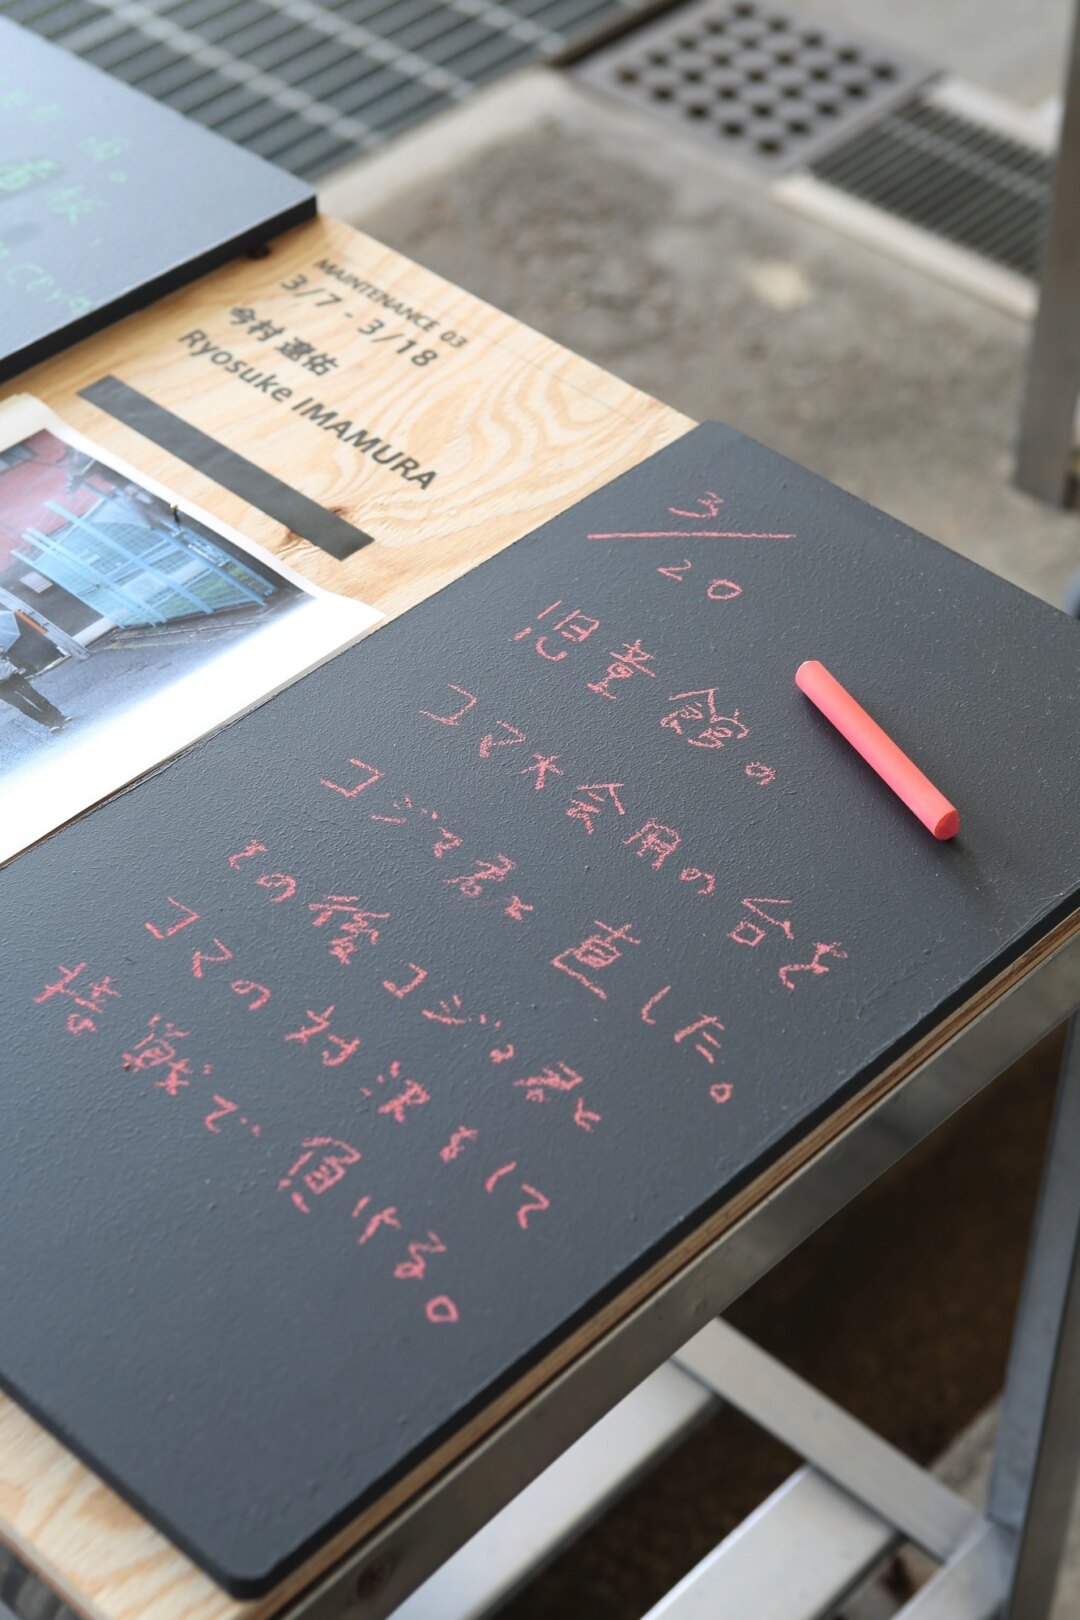 MAINTENANCE 03
3/7 - 3/18
今村 遼佑
Ryosuke IMAMURA
3/20
児童館の
コマ大会用の台を
コジマ君と直した。
その後コジマ君と
コマの対決をして
持戦で負ける。
雨。